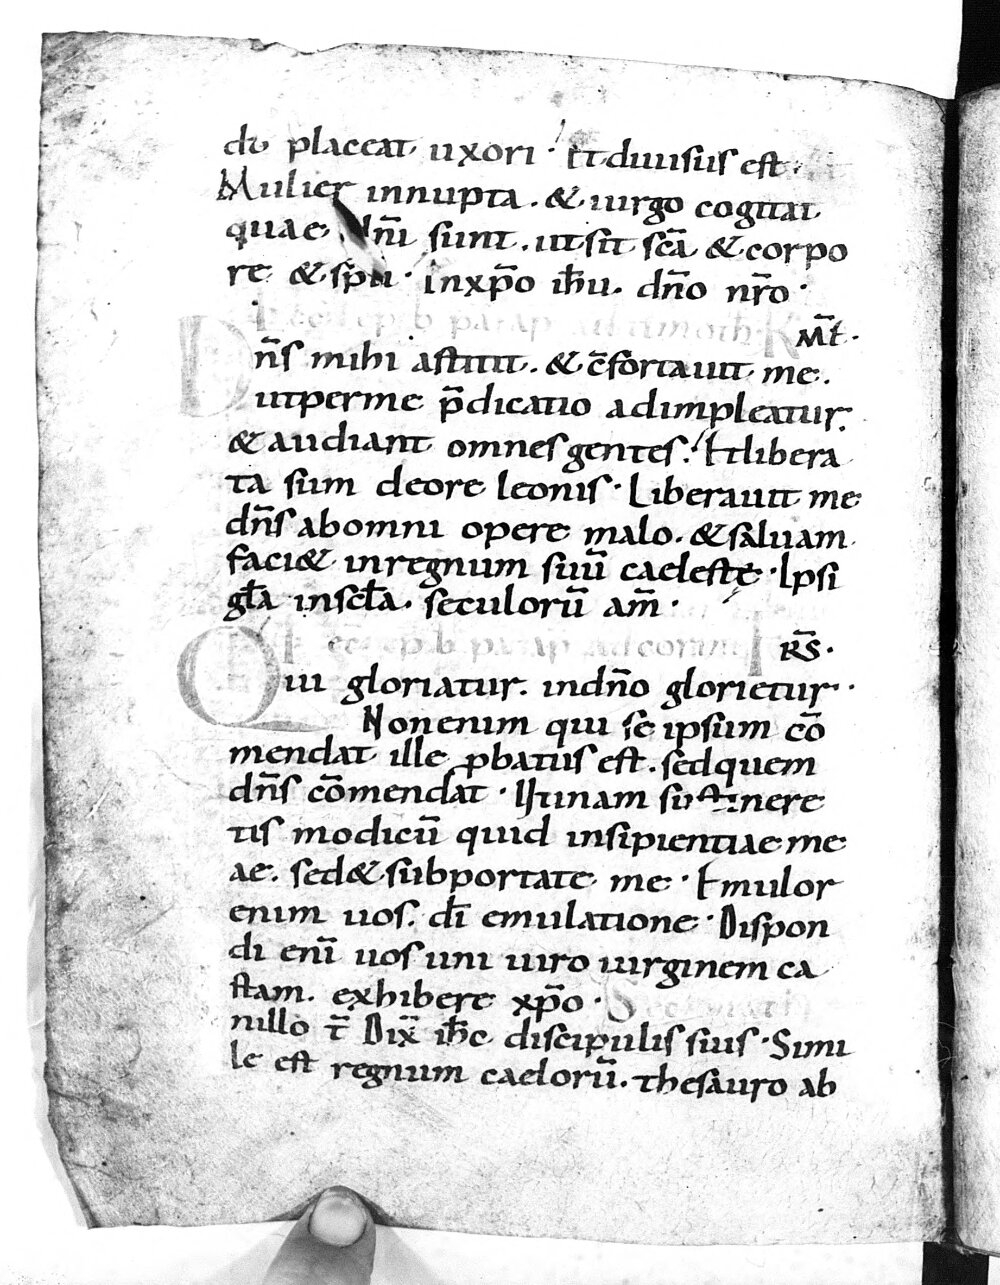 do placeat uxori · Et diuisus est.
Mulier innupta . & uirgo cogitat
quae dn̄i sunt . ut sit sc̄a & corpo
re & sp̄u · In xp̄o ih̄u . dn̄o nr̄o ·
Lec̄ ep̄ b pauli ap ad timoth̄ · Mt̄ ·
Dn̄s mihi astitit . & c̄fortauit me .
ut per me p̄dicatio adimpleatur .
& audiant omnes gentes . Et libera
ta sum de ore leonis · Liberauit me
dn̄s ab omni opere malo . & saluam
faci& in regnum suū caeleste · Ipsi
gl̄a in scl̄a . seculorū am̄ ·
Lec̄ ep̄ b pauli ap̄ ad corint̄ I R̄S ·
Qui gloriatur . in dn̄o glorietur ·
Non enim qui se ipsum cō
mendat ille probatus est . sed quem
dn̄s cōmendat · Utinam sustinere
tis modicū quid insipientiae me
ae . sed & subportate me · Emulor
enim uos . dī emulatione · Dispon
di enī uos uni uiro uirginem ca
stam . exhibere xp̄o ·
nillo t̄ Dix̄ ih̄c discipulis suis · Simi
le est regnum caelorū . thesauro ab